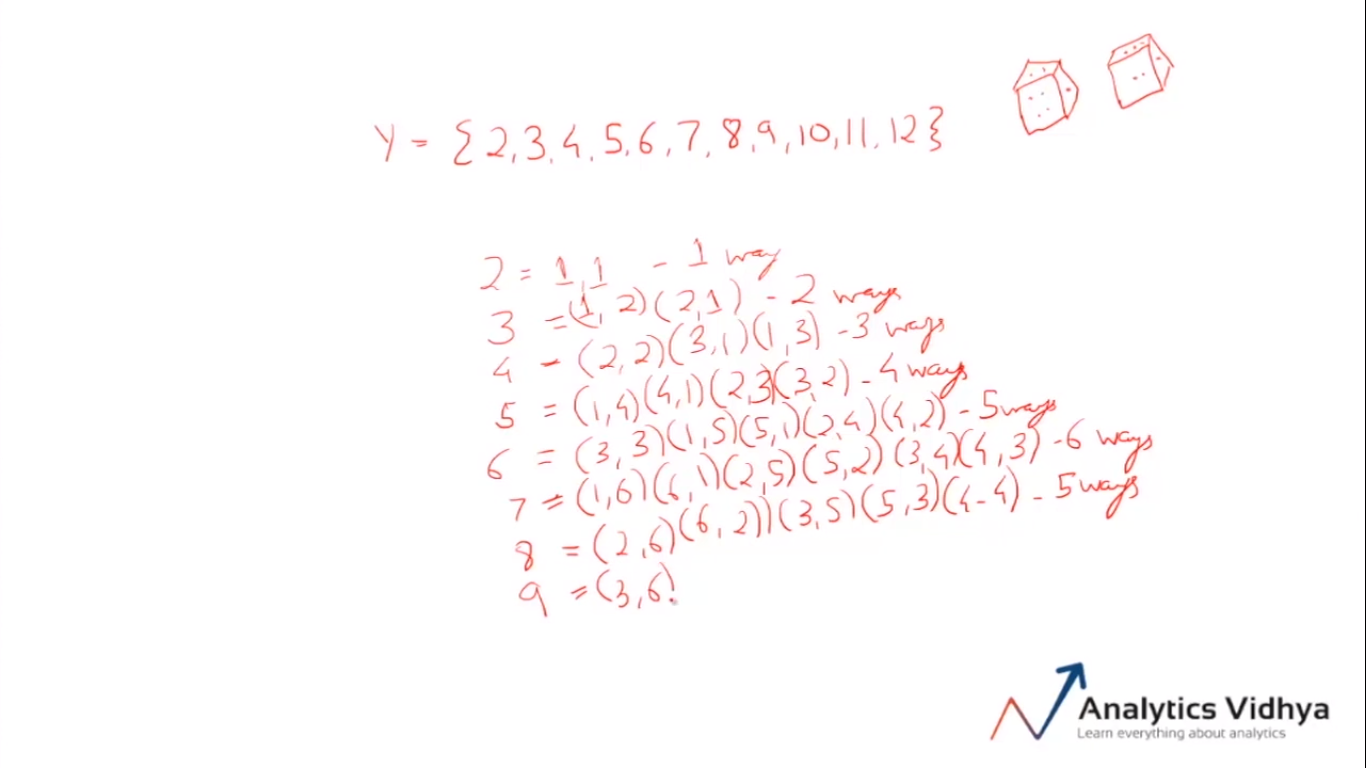 Y = {2,3,4,5,6,7,8,9,10,11,12}
2 = 1,1 - 1 way
3 = (1,2)(2,1) - 2 ways
4 - (2,2)(3,1)(1,3) - 3 ways
5 = (1,4)(4,1)(2,3)(3,2) - 4 ways
6 = (3,3)(1,5)(5,1)(2,4)(4,2) - 5 ways
7 = (1,6)(6,1)(2,5)(5,2)(3,4)(4,3) - 6 ways
8 = (2,6)(6,2))(3,5)(5,3)(4-4) - 5 ways
9 = (3,6)
Analytics Vidhya
Learn everything about analytics